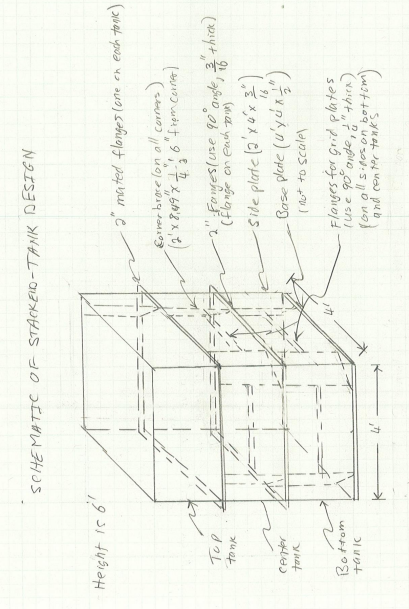 SCHEMATIC OF STACKED-TANK DESIGN
Height is 6'
2" mated flanges (one on each tank)
Corner brace (on all corners)
(2' x 8.49" x 1/4", 6" from corner)
2" Flanges (use 90° angle, 3/16" thick)
(flange on each tank)
Side plate (2' x 4' x 3/16")
Base plate (4' x 4' x 1/2")
(not to scale)
Flanges for grid plates
(use 90° angle, 1/4" thick)
(on all sides on bottom)
and center tanks
Top
tank
center
tank
Bottom
tank
4'
4'